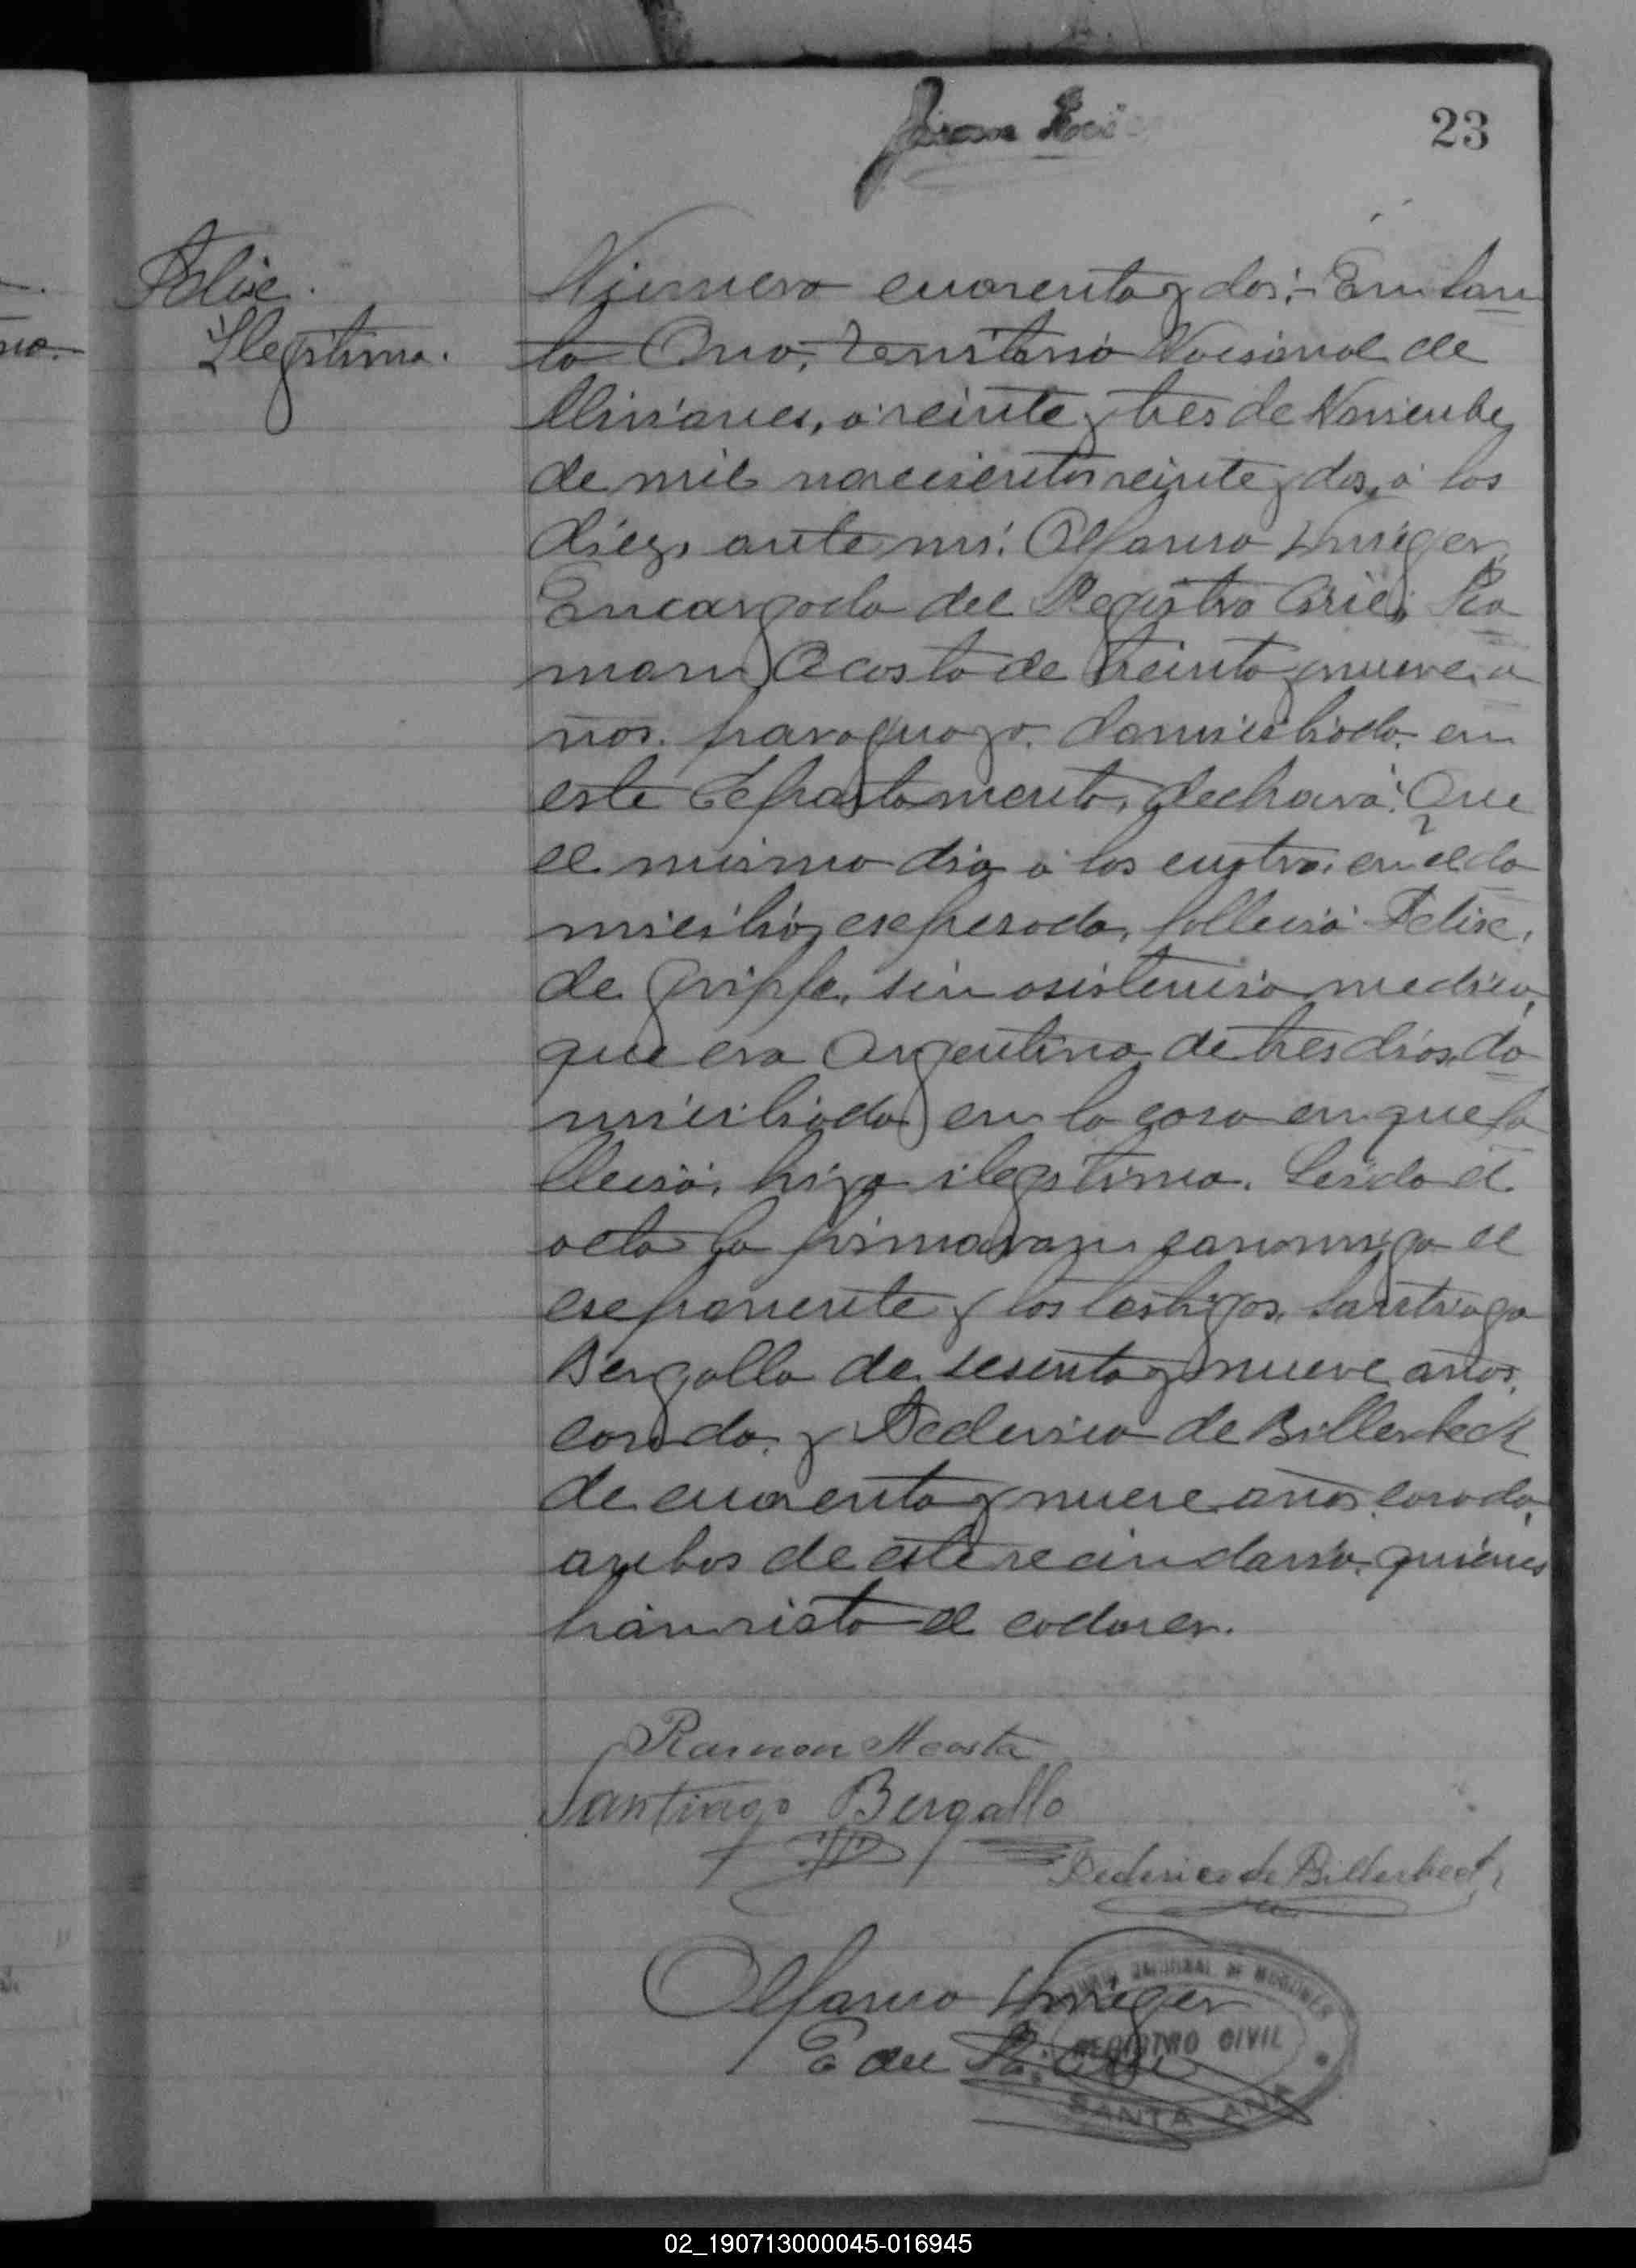 23
Felix.
Ilegitimo.
Número cuarenta y dos:- En San
ta Ana, Territorio Nacional de
Misiones, a veinte y tres de Noviembre
de mil novecientos veinte y dos, a las
diéz, ante mi: Alfonso
Encargado del Registro Civil, Ra
mon Acosta de treinta y nueve, a
ños. paraguayo. domiciliado. en
este departamento, declaró: Que
el mismo dia a las cuatro, en el do
micilio, expresado, falleció Felix,
de grippe, sin asistencia medica,
que era Argentino, de tres dias, do
miciliado en la casa en que fa
lleció, hijo ilegitimo. Leida el
acta la firmaron conmigo el
exponente y los testigos, Santiago
Bergallo de sesenta y nueve años.
casado. y Federico de Billerbeck
de cuarenta y nueve años, casado,
ambos de este vecindario. quienes
han visto el cadaver.
Ramon Acosta
Santiago Bergallo
Federico de Billerbeck
Alfonso
E del R. Civil
NACIONAL DE MISIONES
REGISTRO CIVIL
SANTA ANA
02_190713000045-016945